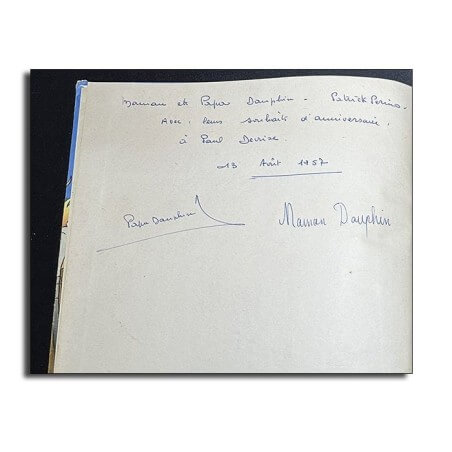 Maman et Papa Dauphin - Patrick Perino.
Avec leurs souhaits d'anniversaire,
à Paul Devise.
13 Août 1957
Papa Dauphin
Maman Dauphin